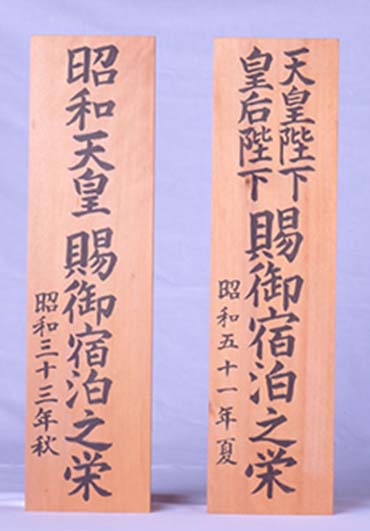 天皇陛下
皇后陛下
賜御宿泊之栄
昭和五十一年夏
昭和天皇賜御宿泊之栄
昭和三十三年秋